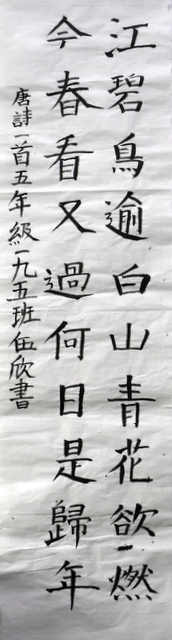 江碧鳥逾白山青花欲燃
今春看又過何日是歸年
唐詩一首五年級一九五班伍欣書